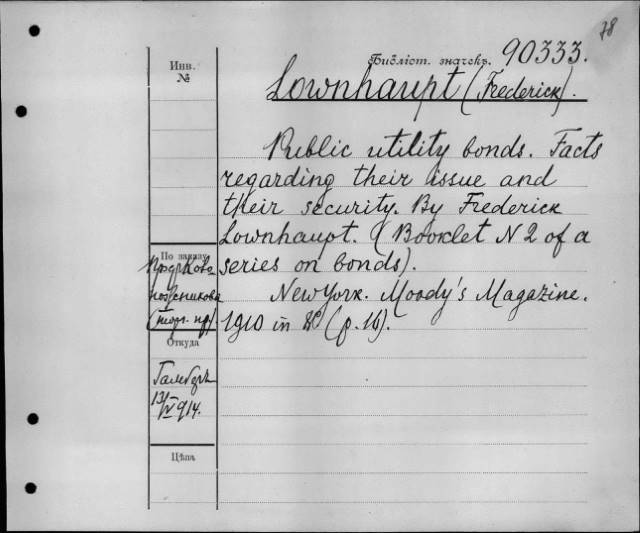 78
Библіот. значекъ. 90333.
Инв.
№
Lownhaupt (Frederick).
Public utility bonds. Facts
regarding their issue and
their security. By Frederick
Lownhaupt. (Booklet N 2 of a
series on bonds).
New York. Moody's Magazine.
1910 in 8º (p. 16).
По заказу
Откуда
1914.
Цѣна